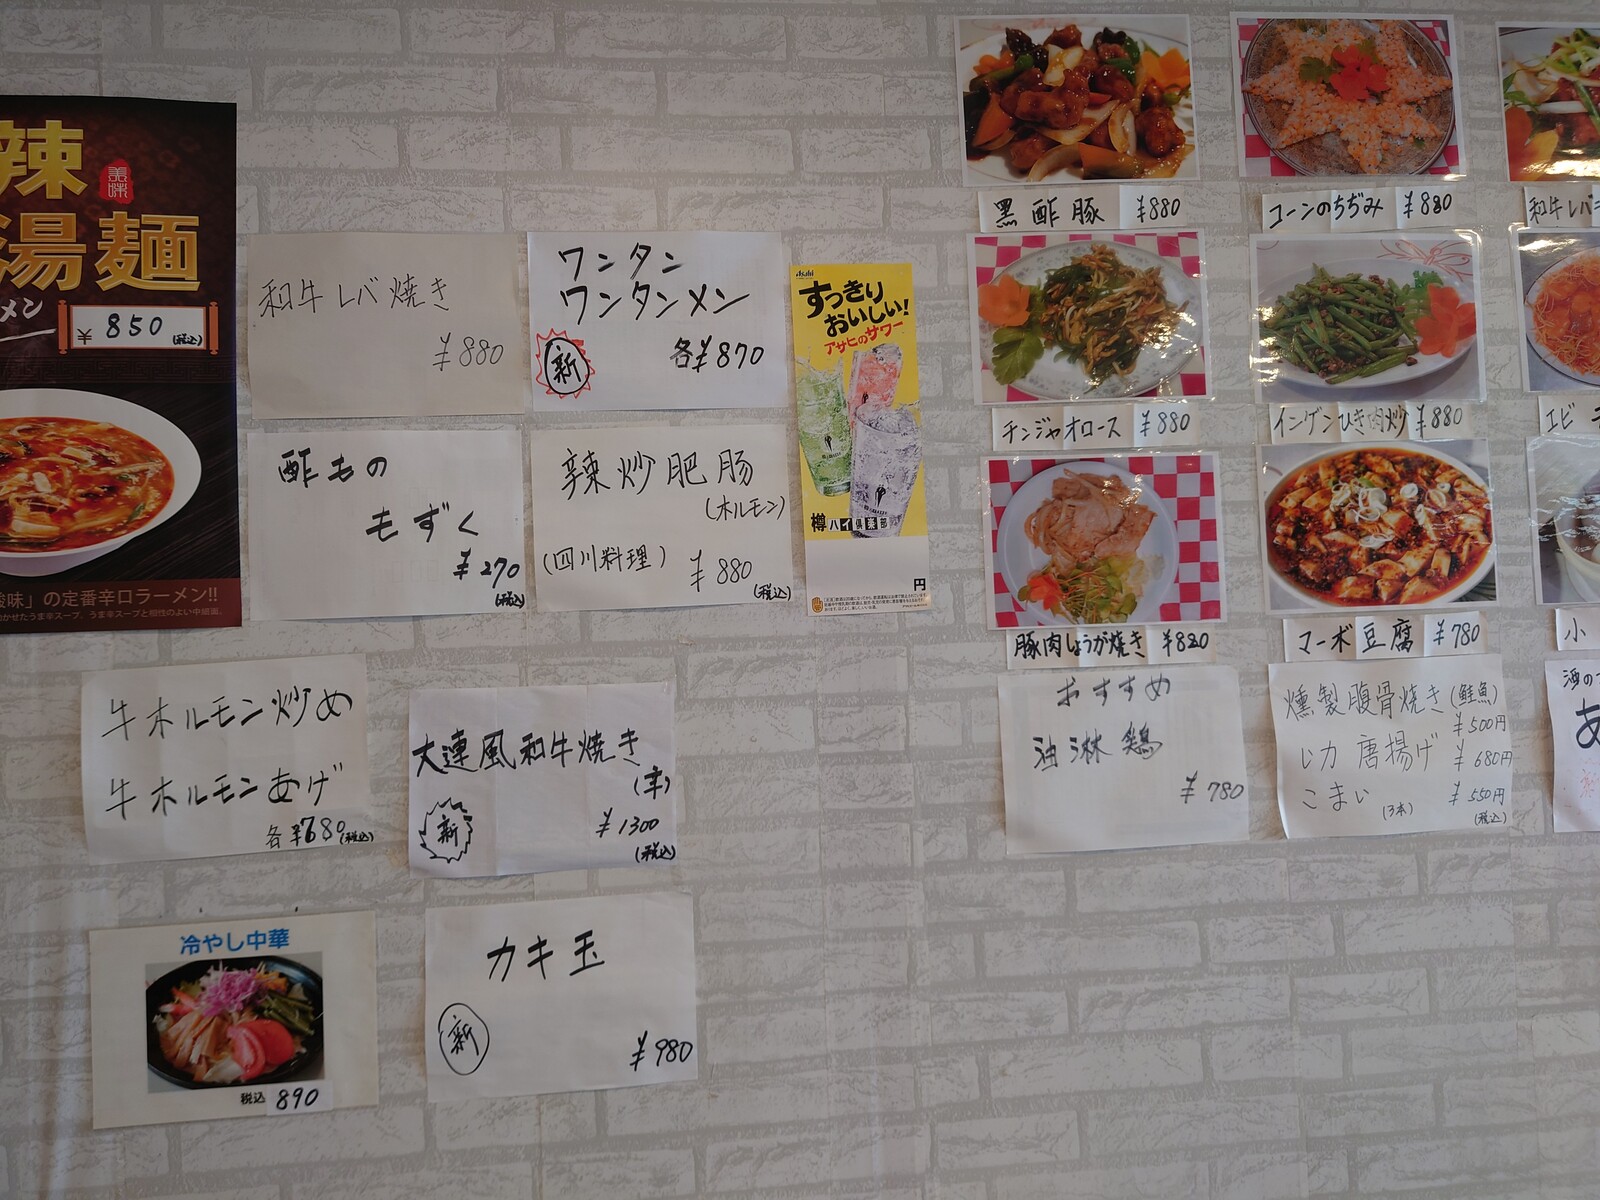 辣
美味
湯麺
メン
¥850(税込)
酸味」の定番辛口ラーメン!!
和牛レバ焼き
¥880
ワンタン
ワンタンメン
新
各¥870
酢もの
もずく
¥270
(税込)
辣炒肥肠
(ホルモン)
(四川料理)
¥880
(税込)
Asahi
すっきり
おいしい!
アサヒのサワー
樽ハイ倶楽部
円
黒酢豚 ¥880
コーンのちぢみ ¥880
和牛レバ
チンジャオロース ¥880
インゲンひき肉炒 ¥880
エビ
豚肉しょうが焼き ¥880
マーボ豆腐 ¥780
小
牛ホルモン炒め
牛ホルモンあげ
各¥680(税込)
大連風和牛焼き
(辛)
新
¥1300
(税込)
おすすめ
油淋鶏
¥780
燻製腹骨焼き(鮭魚)
¥500円
いか唐揚げ ¥680円
こまい(3本) ¥550円
(税込)
酒の
あ
冷やし中華
税込 890
カキ玉
新
¥980